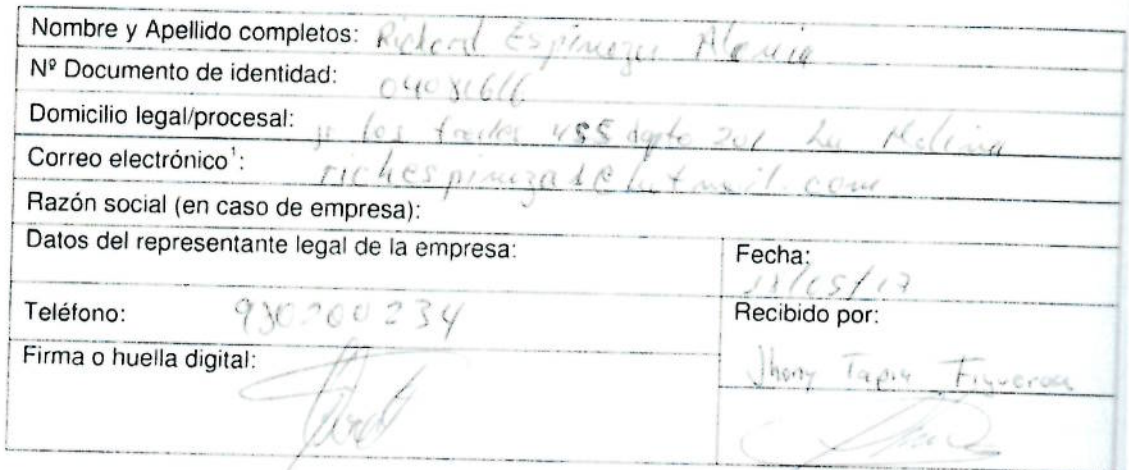 Nombre y Apellido completos: Richard Espinoza Alania
Nº Documento de identidad: 04081616
Domicilio legal/procesal: los frailes 455 dpto 201 La Molina
Correo electrónico¹: richespinoza1@hotmail.com
Razón social (en caso de empresa):
Datos del representante legal de la empresa:
Fecha: /05/17
Teléfono: 200234
Recibido por:
Firma o huella digital:
Jhony Tapia Figueroa